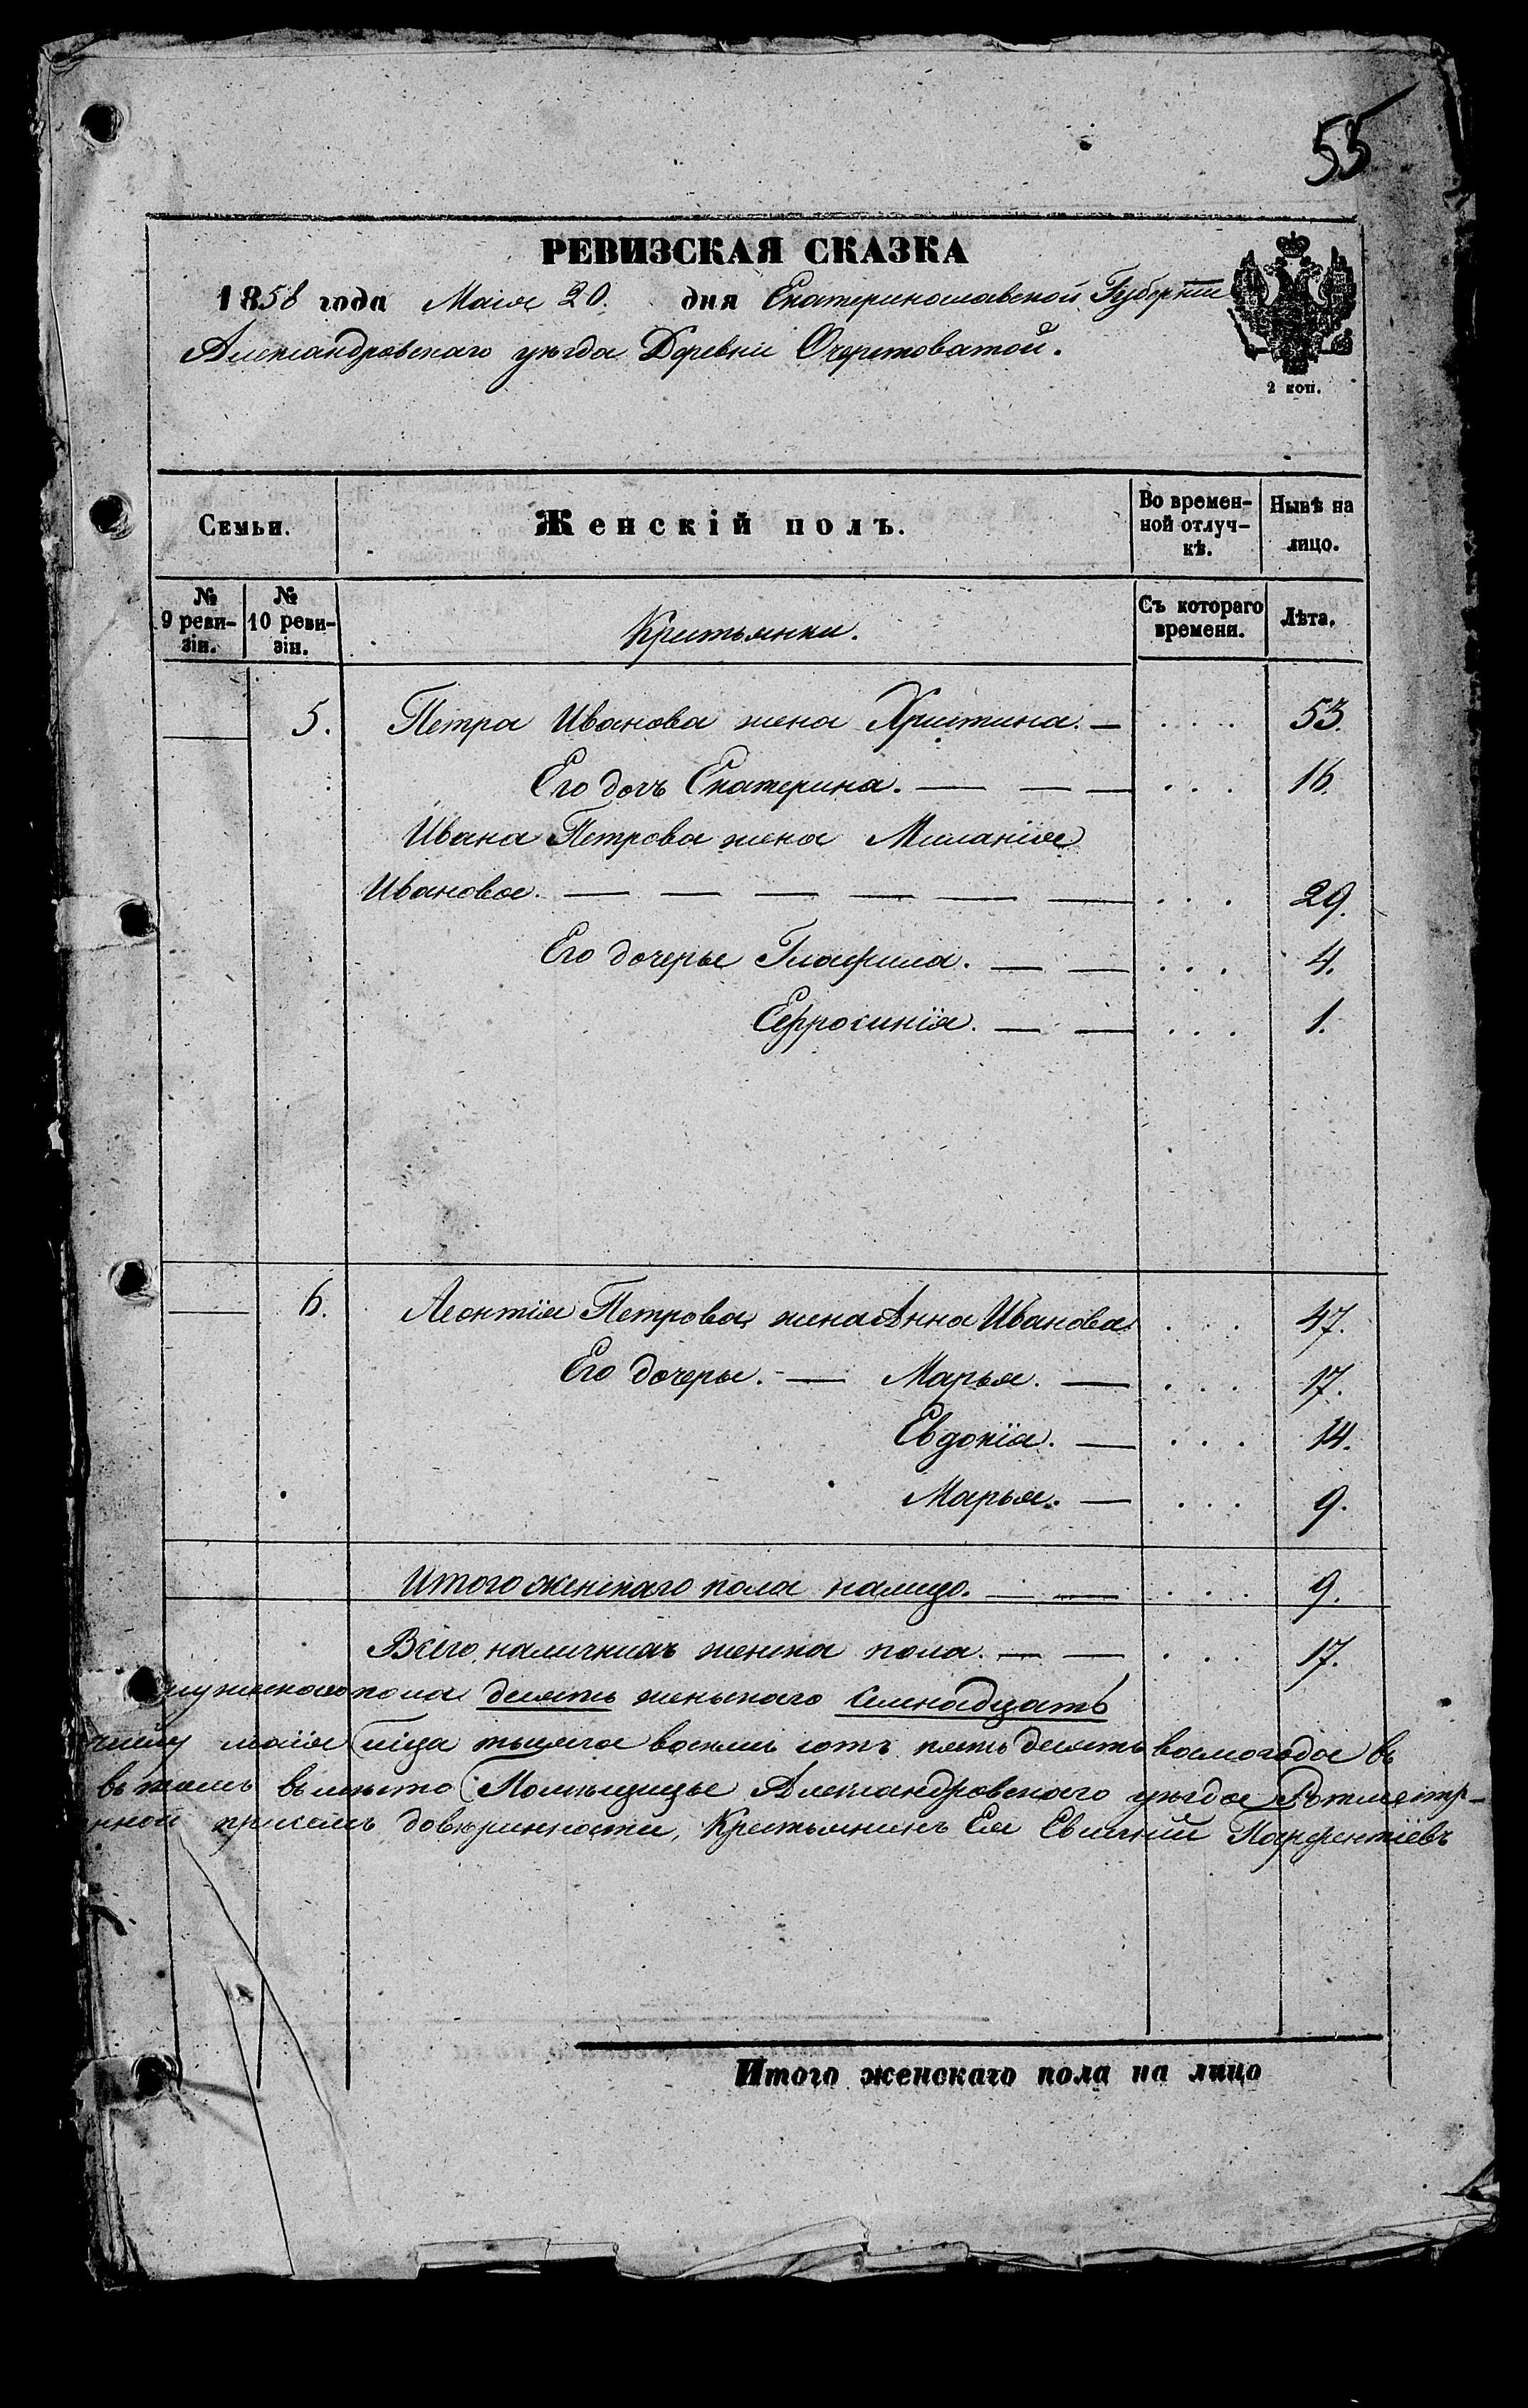 55
РЕВИЗСКАЯ СКАЗКА
1858 года Маія 20. дня Екатеринославской Губерніи
Александровскаго уѣзда Деревни Очеретоватой.
2 коп.
Семьи. Женскій полъ. Во времен-ной отлуч-кѣ. Нынѣ на лицо.
№ 9 реви-зіи. № 10 реви-зіи. Крестьянки. Съ котораго времени. Лѣта.
5. Петра Иванова жена Христина. — 53.
Его дочь Екатерина. — — — 16.
Ивана Петрова жена Миланія
Иванова. — — — — — — 29.
Его дочеры Глафира. — — 4.
Ефросинія. — — 1.
6. Леонтія Петрова жена Анна Иванова 47.
Его дочеры. — Марья. — 17.
Евдокія. — 14.
Марья. — 9.
Итого женскаго пола налицо. — — 9.
Всего наличныхъ женска пола. — — 17.
мужескаго пола десять женскаго семнадцать
маія тысяча восемь сотъ пять десять восмого года въ
въ томъ вместо Помѣщицы Александровскаго уѣзда Ротмистр-
нной довѣринности, Крестьянинъ Ея Евгеній Парфентіевъ
Итого женскаго пола на лицо